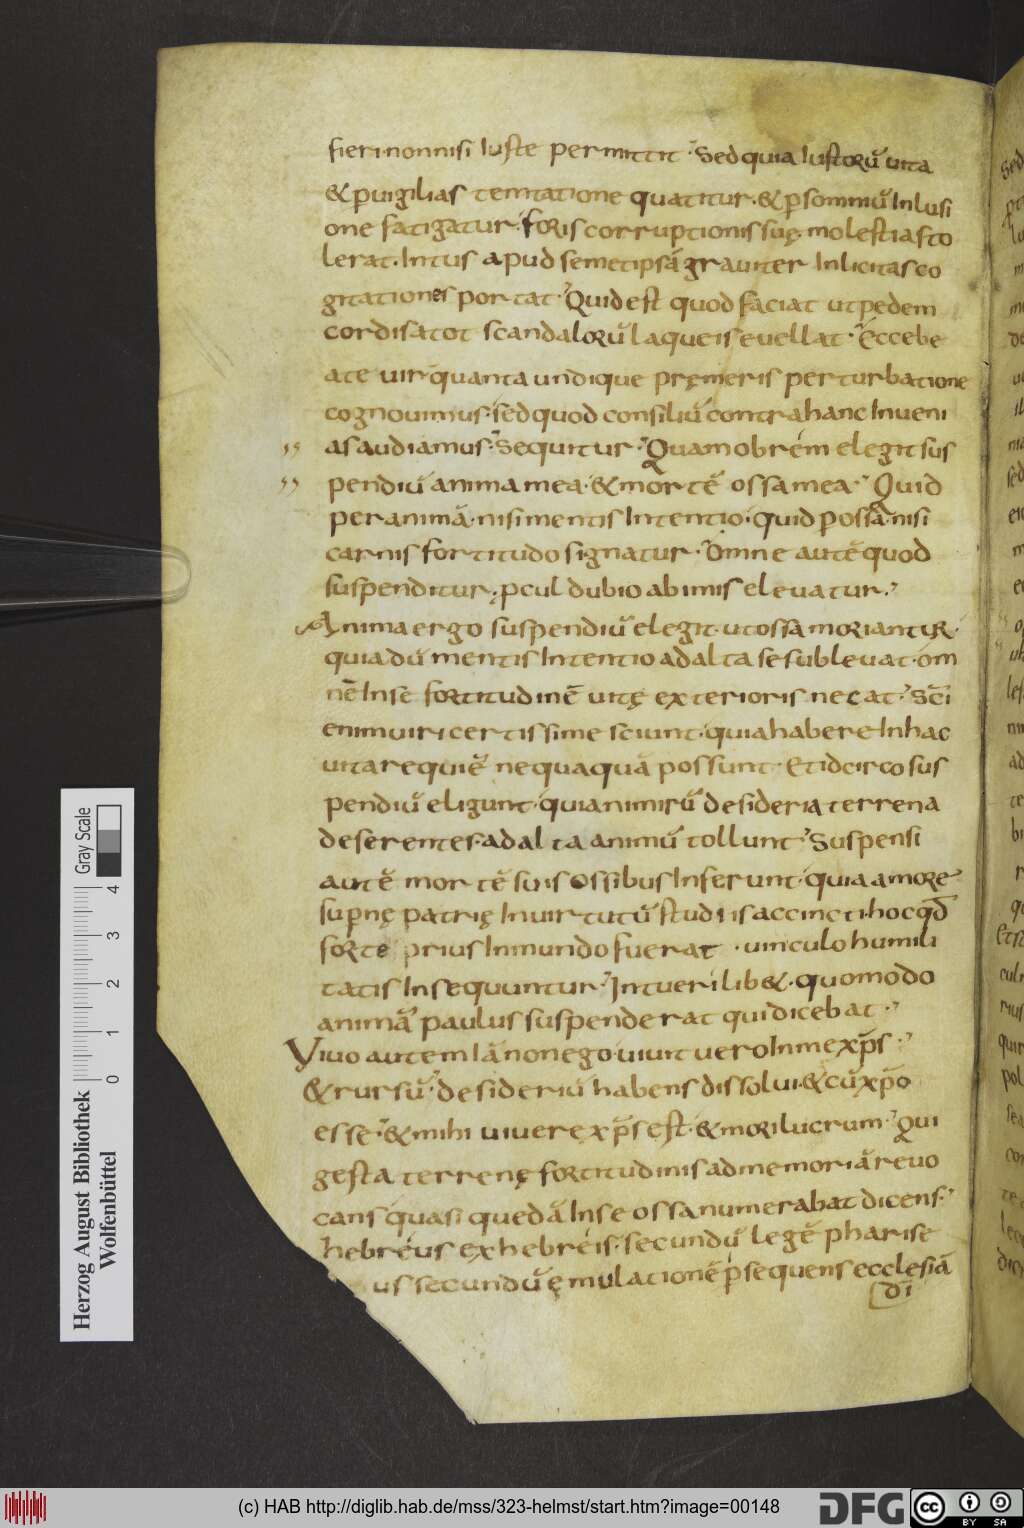 fieri nonnisi iuste permittit. Sed quia iustorũ uita
& puigilias temtatione quatitur. & p somniũ Inlusi
one fatigatur. foris corruptionis suę molestias to
lerat. Intus apud semetipsã grauiter Inlicitas co
gitationes portat. Quid est quod faciat ut pedem
cordis a tot scandalorũ laqueis euellat. Ecce be
ate uir quanta undique pręmeris perturbatione
cognouimus. sed quod consiliũ contra hanc Inueni
as audiamus. Sequitur. Quam obrem elegit sus
pendiũ anima mea. & mortẽ ossa mea. Quid
per animã. nisi mentis Intentio. quid p ossa. nisi
carnis fortitudo signatur. Omne autẽ quod
suspenditur. pcul dubio ab imis eleuatur.
Anima ergo suspendiũ elegit. ut ossa moriantur.
quia dũ mentis Intentio ad alta se subleuat. om
nẽ In se fortitudinẽ uitę exterioris necat. Sc̃i
enim uiri certissime sciunt. quia habere In hac
uita requiẽ nequaquã possunt. Et idcirco sus
pendiũ eligunt. quia nimirũ desideria terrena
deserentes. ad alta animũ tollunt. Suspensi
autẽ mortẽ suis ossibus Inferunt. quia amore
supnę patrię In uirtutũ studiis accincti. hoc qd̃
forte prius In mundo fuerat. uinculo humili
tatis Insequuntur. Intueri lib&. quomodo
animã paulus suspenderat qui dicebat.
Viuo autem Iã non ego. uiuit uero In me xp̃s.
& rursũ. desideriũ habens dissolui. & cũ xp̃o
esse. & mihi uiuere xp̃s est. & mori lucrum. Qui
gesta terrenę fortitudinis ad memoriã reuo
cans quasi quedã In se ossa numerabat dicens.
hebreus ex hebreis. secundũ legẽ pharise
us secundũ ęmulationẽ psequens ecclesiã
dĩ
Herzog August Bibliothek
Wolfenbüttel
0 1 2 3 4
Gray Scale
(c) HAB http://diglib.hab.de/mss/323-helmst/start.htm?image=00148
DFG
cc BY SA